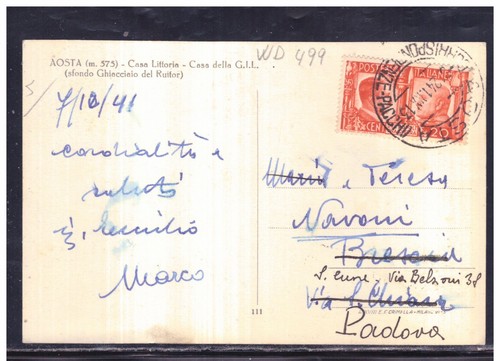 AOSTA (m. 575) - Casa Littoria - Casa della G.I.L.
(sfondo Ghiacciaio del Ruitor)
WD 499
POSTE ITALIANE
CENT 20
7/10/41
cordialità e
saluti
Marco
Maria e Teresa
Navoni
Brescia
Via Belzoni 38
Via S. Chiara
Padova
111